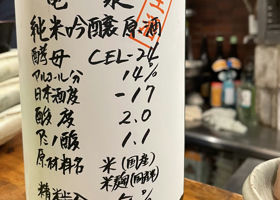 純米吟醸原酒
酵母 CEL-24
アルコール分 14%
日本酒度 -17
酸度 2.0
アミノ酸 1.1
原材料名 米(国産)
米麹(国産米)
精米歩合